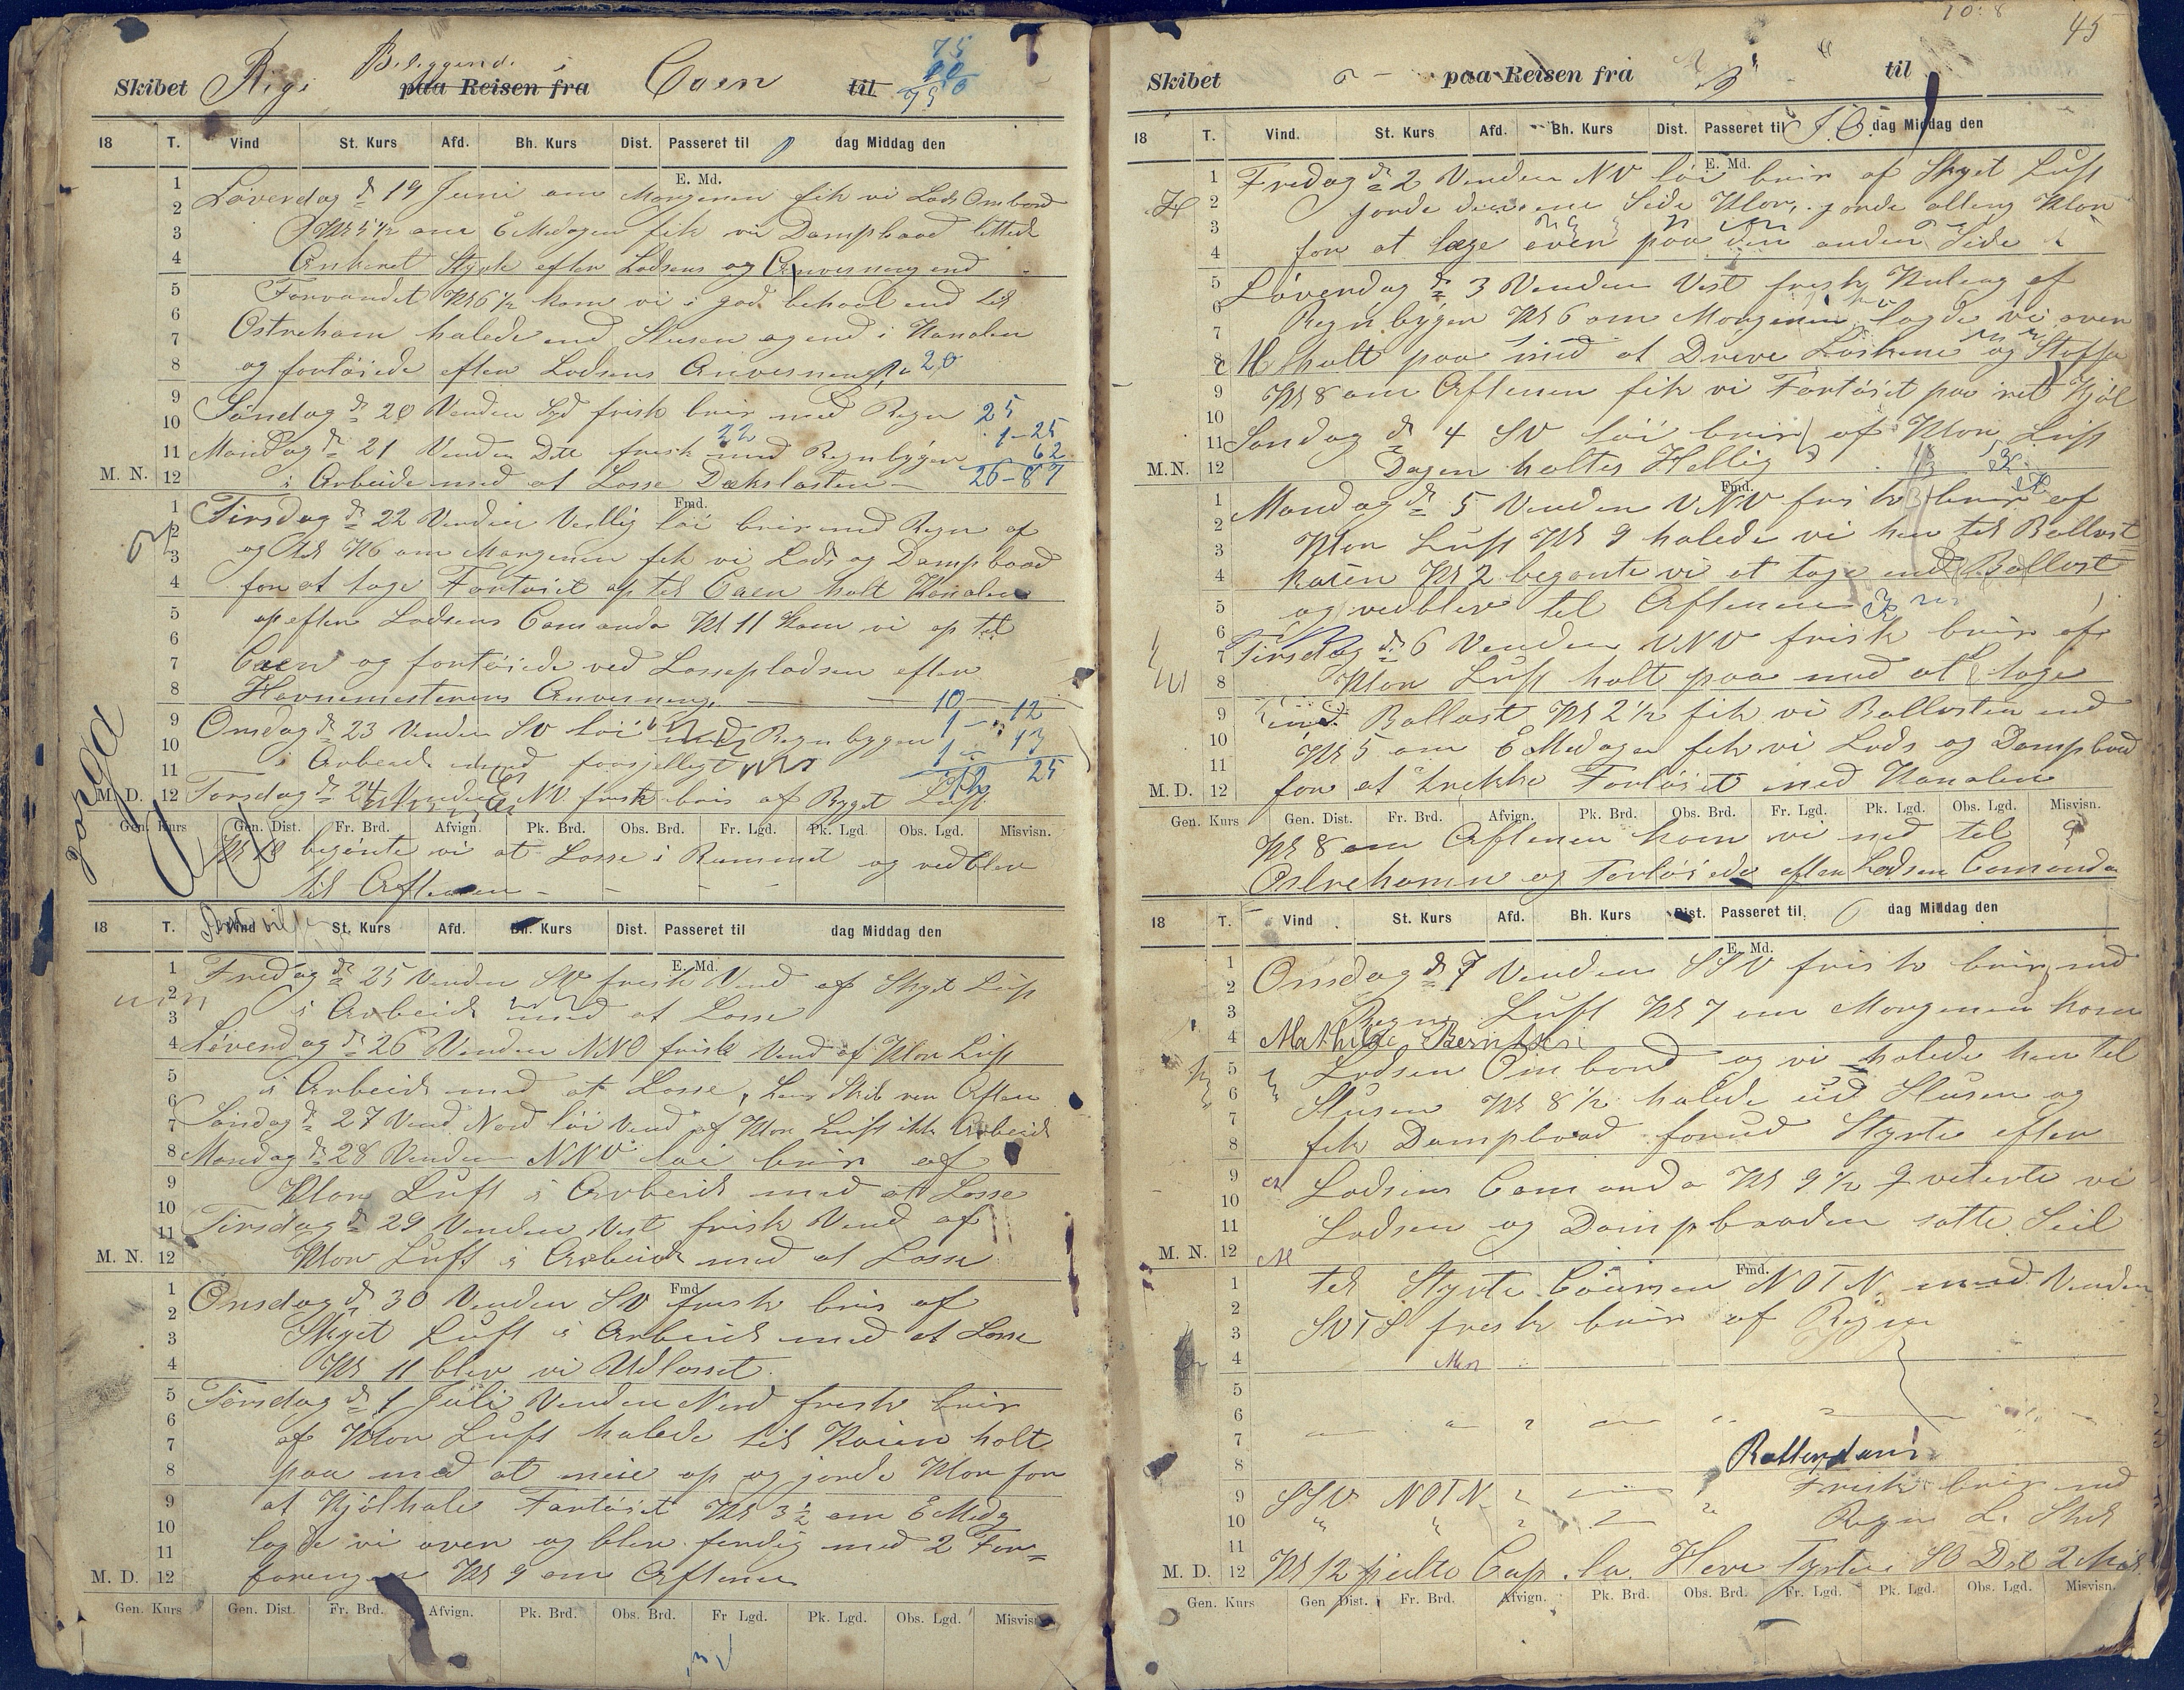 Skibet Rigi Beliggende i Caen til
paa Reisen fra
18 T. Vind St. Kurs Afd. Bh. Kurs Dist. Passeret til dag Middag den
E. Md.
Løverdag d 19 Juni om Morgenen fik vi Lods Ombord
Kl 5½ om EMedagen fik vi Dampbaad lettede
Ankeret Styrte efter Lodsens og Anvisning end
Farvandet Kl 6½ kom vi i god behaal end til
Ostreham halede end Slusen og end i Kanalen
og fortøiede efter Lodsens Anvisning 20
Søndag d 20 Venden Syd frisk bris med Regn 25
1-25
22
Mandag d 21 Venden Dito frisk med Regnbyger 62
M. N. i Arbeide med at Losse Dækslasten 26-87
Fmd.
Tirsdag d 22 Venden Vestlig løi bris med Regn af
og til Kl 6 om Morgenen fik vi Lods og Dampbaad
for at tage Fartøiet op til Caen halt Kanalen
op efter Lodsens Comando Kl 11 kom vi op til
Caen og fortøiede ved Lossepladsen efter
Havnemesterens Anvisning. 10-12
Onsdag d 23 Venden SV løi med Regnbyger 1 - 13
i Arbeide med forsjelligt 25
M. D. Torsdag d 24 Venden NV frisk bris af Bygget Luft
Gen. Kurs Gen. Dist. Fr. Brd. Afvign. Pk. Brd. Obs. Brd. Fr. Lgd. Pk. Lgd. Obs. Lgd. Misvisn.
Kl 10 begönte vi at Losse i Rummet og vedblev
til Aftenen
18 T. Vind St. Kurs Afd. Bh. Kurs Dist. Passeret til dag Middag den
E. Md.
Fredag d 25 Venden SV frisk Vend af Skyet Luft
i Arbeide med at Losse
Løverdag d 26 Venden NNO frisk Vend af Klar Luft
i Arbeide med at Losse, Lens Skib ver Aften
Søndag d 27 Vend Nord løi Vend af Klar Luft ikke Arbeide
Mandag d 28 Venden NNV løi bris af
Klar Luft i Arbeide med at Losse
Tirsdag d 29 Venden Vest frisk Vend af
M. N. Klar Luft i Arbeide med at Losse
Fmd
Onsdag d 30 Venden SV frisk bris af
Skyet Luft i Arbeide med at Losse
Kl 11 blev vi Udlosset.
Torsdag d 1 Juli Venden Nord frisk bris
af Klar Luft halede til Kaien holt
paa med at meie op og jorde Klar for
at Kjølhale Fartøiet Kl 3½ om EMedg
lagde vi over og blev ferdig med 2 For=
foringer Kl 9 om Aftenen
M. D.
Gen. Kurs Gen. Dist. Fr. Brd. Afvign. Pk. Brd. Obs. Brd. Fr Lgd. Pk. Lgd. Obs. Lgd. Misvisn.
45
Skibet paa Reisen fra til
18 T. Vind. St. Kurs Afd. Bh. Kurs Dist. Passeret til dag Middag den
E. Md.
Fredag d 2 Venden NV løi bris af Skyet Luft
jorde denne Side Klar, jorde alting Klar
for at læge over paa den anden Side
Løverdag d 3 Venden Vest frisk Kuling af
Regnbyger Kl 6 om Morgenen lagde vi over
holt paa med at Dreve Laskene og Støffa
Kl 8 om Aftenen fik vi Fartøiet paa ret Kjøl
Søndag d 4 SV løi bris af Klar Luft
M. N. Dagen holtes Hellig
Fmd.
Mandag d 5 Venden VNV frisk bris af
Klar Luft Kl 9 halede vi hen til Ballast=
kaien Kl 2 begønte vi at tage end Ballast
og vedblev til Aftenen
Tirsdag d 6 Venden VNV frisk bris af
Klar Luft holt paa med at tage
end Ballast Kl 2½ fik vi Ballasten end
Kl 5 om EMedagen fik vi Lods og Dampbaad
M. D. for at trekke Fartøiet ned Kanalen
Gen. Kurs Gen. Dist. Fr. Brd. Afvign. Pk. Brd. Obs. Brd. Fr. Lgd. Pk. Lgd. Obs. Lgd. Misvisn.
Kl 8 om Aftenen kom vi ned til
Ostrehamn og Fortøiede efter Lodsens Comando
18 T. Vind St. Kurs Afd. Bh. Kurs Dist. Passeret til dag Middag den
E. Md.
Onsdag d 7 Venden SSV frisk bris med
Regn Luft Kl 7 om Morgenen kom
Mathilde Berntsen
Lodsen Ombord og vi halede hen til
Slusen Kl 8½ halede ud Slusen og
fik Dampbaad forud Styrte efter
Lodsens Comando Kl 9½ qveterte vi
Lodsen og Dampbaaden satte Seil
M. N.
Fmd.
til Styrte Coursen NOTN med Venden
SVTS frisk bris af Regn
Rotterdam
SSV NOTN Frisk bris med
Regn L.
M. D. Kl 12 peilte Cap la Heve Tyrten SO Dst 2 Mil
Gen. Kurs Gen Dist. Fr. Brd. Afvign. Pk. Brd. Obs. Brd. Fr. Lgd. Pk. Lgd. Obs. Lgd. Misvisn.